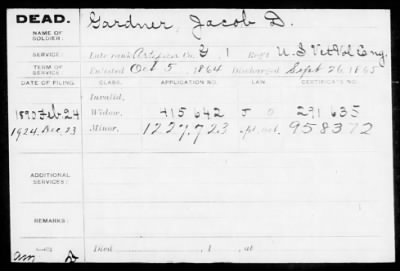 DEAD. Gardner, Jacob D.
NAME OF SOLDIER:
SERVICE: Late rank, Artificer Co. G, 1 Reg't U.S. Vet Vol Eng.
TERM OF SERVICE: Enlisted Oct 5, 1864 Discharged Sept 26, 1865
DATE OF FILING. CLASS. APPLICATION NO. CERTIFICATE NO.
Invalid,
Feb 24 Widow, 415642 291635
1924, Dec. 23 Minor, 1227.723 958372
ADDITIONAL SERVICES:
REMARKS:
Died , 1 , at